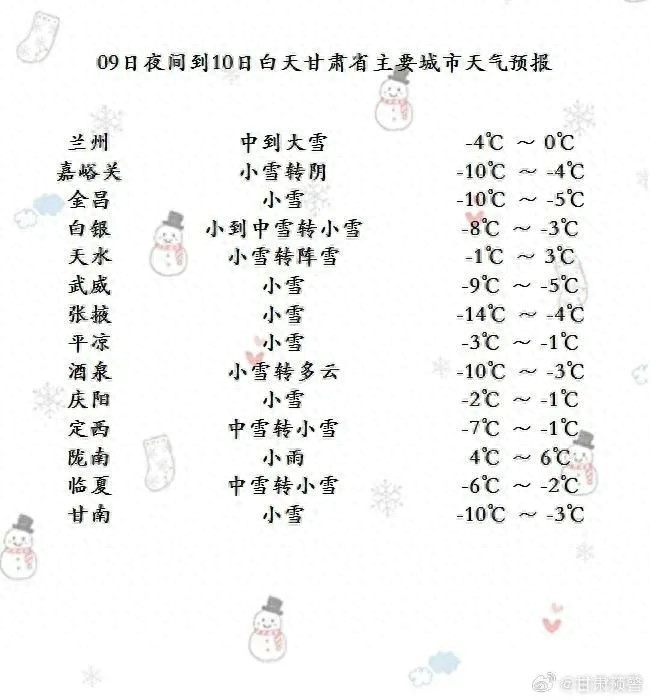 09日夜间到10日白天甘肃省主要城市天气预报
兰州 中到大雪 -4℃ ～ 0℃
嘉峪关 小雪转阴 -10℃ ～ -4℃
金昌 小雪 -10℃ ～ -5℃
白银 小到中雪转小雪 -8℃ ～ -3℃
天水 小雪转阵雪 -1℃ ～ 3℃
武威 小雪 -9℃ ～ -5℃
张掖 小雪 -14℃ ～ -4℃
平凉 小雪 -3℃ ～ -1℃
酒泉 小雪转多云 -10℃ ～ -3℃
庆阳 小雪 -2℃ ～ -1℃
定西 中雪转小雪 -7℃ ～ -1℃
陇南 小雨 4℃ ～ 6℃
临夏 中雪转小雪 -6℃ ～ -2℃
甘南 小雪 -10℃ ～ -3℃
@甘肃预警